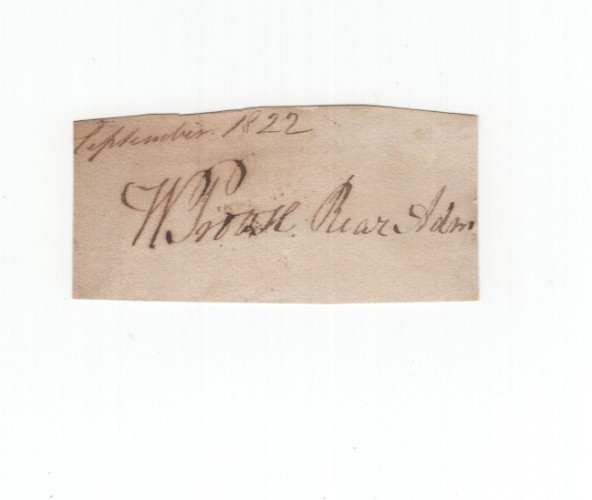 September 1822
W Prowse Rear Adm